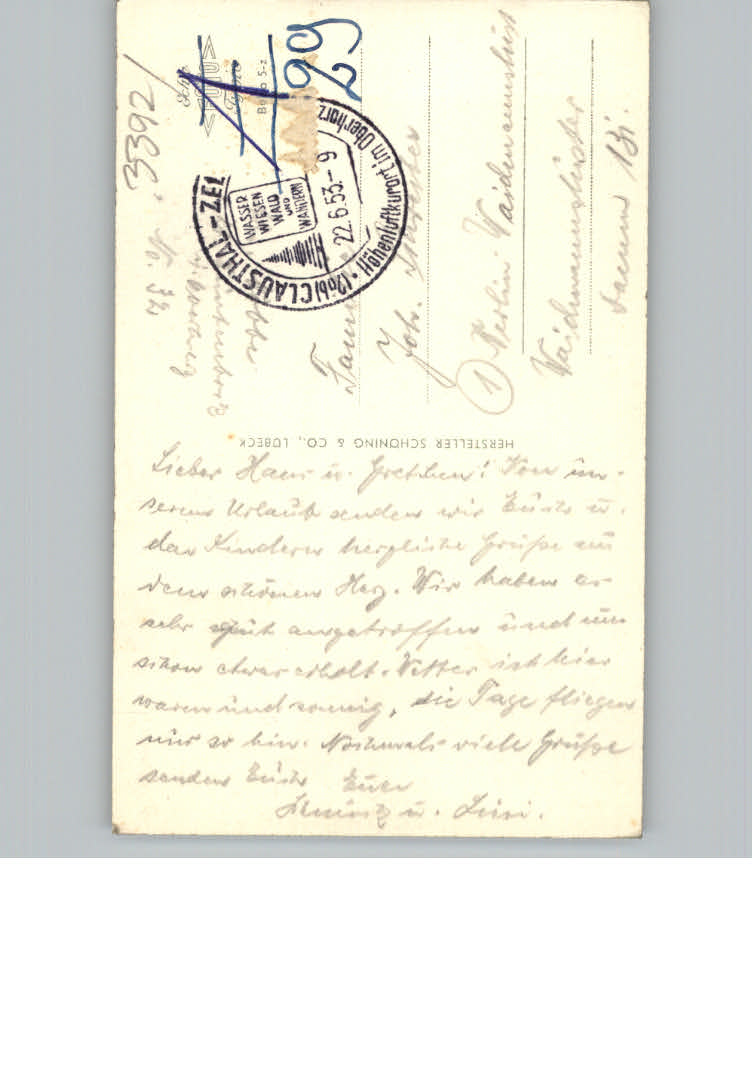 3392/
29
Echte
Foto
CLAUSTHAL-ZEL
(20b)
Höhenluftkurort im Oberharz
WASSER
WIESEN
WALD
UND
WANDERN
22.6.53.-9
No. 32
Joh.
(1) Berlin Waidmannslust
Waidmannsluster
damm 131.
HERSTELLER SCHÖNING & CO., LÜBECK
Lieber Hans u. Gretchen! Von un-
serem Urlaub senden wir Euch u.
den Kindern herzliche Grüße aus
dem schönen Harz. Wir haben es
sehr gut angetroffen und uns
schon etwas erholt. Wetter ist hier
warm und sonnig, die Tage fliegen
nur so hin. Nochmals viele Grüße
senden Euch Eure
u.